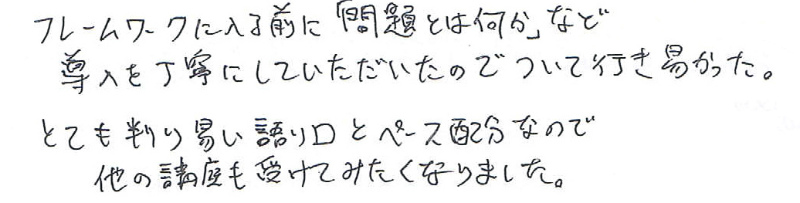 フレームワークに入る前に「問題とは何か」など
導入を丁寧にしていただいたのでついて行き易かった。
とても判り易い語り口とペース配分なので
他の講座も受けてみたくなりました。